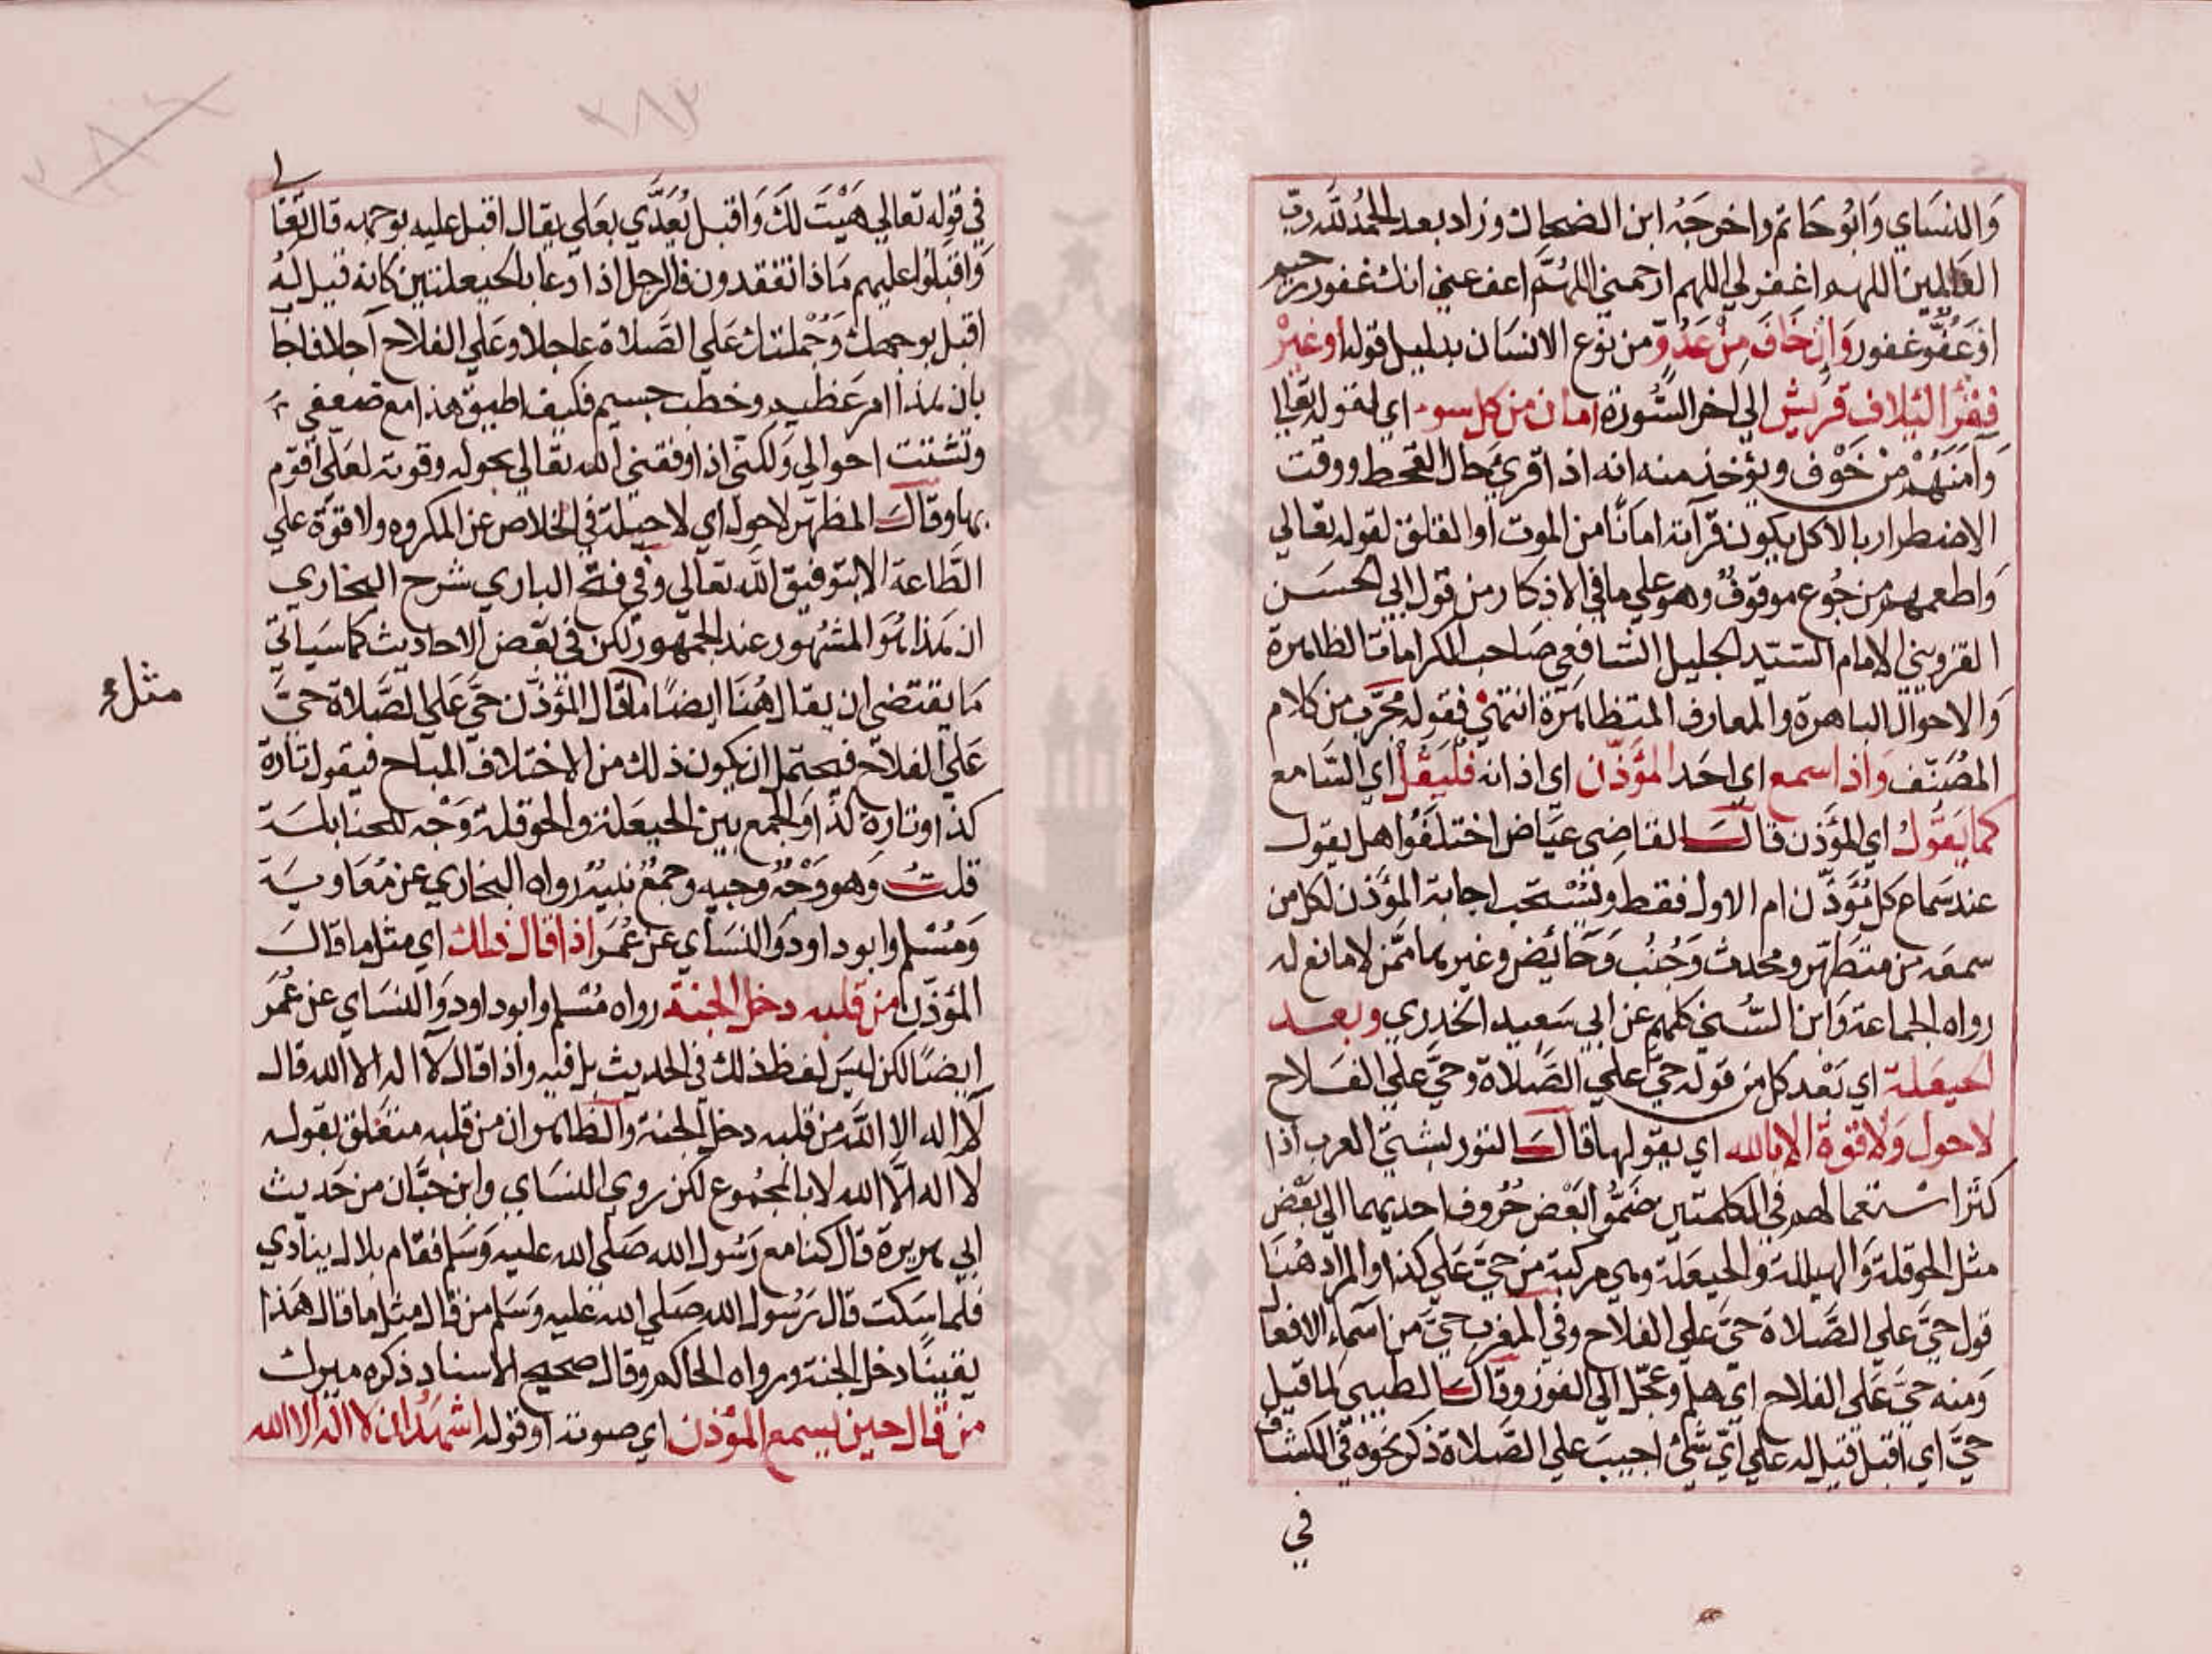 وَالنسَاي وَابُو حَاتم واخرجَهُ ابن الضحاك وزاد بعد الحمدُ لله ربّ
العَالمِين اللهم اغفر لي اللهم ارحمني اللهُمَّ اعف عني انك غفور رحيم
اوعَفُوّ غفور وَإن خَافَ مِنْ عَدُوٍّ من نوع الانسَان بدليل قوله اوغيره
فيقرأ لئلاف قريش الي اخر السُّورَة امان من كل سوء اي لقوله تعالي
وَآمَنَهُمْ من خَوْف ويؤخذ منه انه اذا قرئ حال القحط ووقت
الاضطرار بالاكل يكون قرآته امانًا من الموت اوالقلق لقوله تعالي
وَاطعمهم من جُوع موقوف وهو علي ما في الاذكار من قول ابي الحسَن
القزويني الامام السَّيّد الجليل الشافعي صَاحب الكرامات الظاهرة
وَالاحوال الباهرة والمعارف المتظاهرة انتهيٰ فقوله مجرّب من كلام
المصُنّف واذا سمع اي احَد المؤذّن اي اذانه فليقل اي السَّامع
كما يَقول اي المؤذن قالَ القاضِي عيَاض اختلفُوا هل يقول
عند سَماع كل مُؤَذّن ام الاول فقط ويُسْتحَب اجابة المؤَذن لكل من
سمعَه من متطَهّر ومحدث وَجُنُب وَحَائض وغيرهما ممّن لا مانع له
رواه الجماعة وَابن السُّني كلهم عن ابي سَعيد الخدري وبعد
الحيعَلة اي بَعْد كل من قوله حيّ علي الصَّلاة وحَيَّ علَي الفَلاح
لاحول وَلاقوة الابالله اي يقولها قالَ التوربشتي العرب اذا
كثرَ استعمالهم في الكلمتين ضَمُّوا بَعْض حُرُوف احديهما الي بَعْض
مثل الحوقلة وَالهيللة والحيعَلة وهي مركبة من حيَّ عَلي كذا والمرَاد هُنَا
قول حيَّ علي الصَّلاة حَيَّ علي الفلاح وفي المغرب حيَّ من اسَماء الافعال
وَمنه حَيَّ عَلي الفلاح اي هلم وعجّل الي الفوز وقالَ الطيبي لما قيل
حيَّ اي اقبل قيل له علي اي شئ اجيبَ علي الصَّلاة ذكر نحوه في الكشاف
في
في قوله تعالي هَيْتَ لكَ وَاقبل يُعَدَّي بعَلي يقال اقبل عليه بوجهه قال تعا
وَاقبلوا عليهم مَاذا تفقدون فالرجل اذا دعا بالحيعلتين كانه قيل لهُ
اقبل بوجهك وَجُملتك عَلي الصَّلاة عاجلا وعَلي الفلاح آجلا فاجَا
بان هذا امر عَظيم وخطب جسيم فكيف اطيق هذا مع ضعفي
وتشتت احوالي وَلكني اذا وفقني الله تعالي بحوله وقوته لعَلي اقوم
بها وقالَ المظهّر لاحول اي لا حيلة في الخلاص عن المكروه ولا قوّة علي
الطَّاعة الا بتوفيق الله تعَالي وفي فتح الباري شرح البخاري
ان هذا هُوَ المشهُور عند الجمهور لكن في بَعض الاحاديث كما سَياتي
مَا يقتضي ان يقال هُنَا ايضًا ما قال المؤذّن حَيَّ عَلي الصَّلاة حيَّ
عَلي الفلاح فيحتمل ان يكون ذلك من الاختلاف المباح فيقول تارة
كذا وتارة كذا وَالجمع بين الحيعَلة والحوقلة وَجْه للحنابلَة
قلتُ وَهو وَجْهٌ وجيه وجمعٌ نبيهٌ رواه البخاري عن مُعَاويَة
وَمُسْلم وابو داود وَالنسَاي عن عُمَر اذا قال ذلك اي مثل ما قالَ
مثل
المؤذّن من قلبه دخل الجنة رواه مُسْلم وابو داود وَالنسَاي عن عُمَر
ايضًا لكن ليسَ لفظ ذلك في الحديث بل فيه واذا قال لآ اله الا الله قال
لآ اله الا اللَّه من قلبه دخل الجنة والظاهر ان من قلبه متعَلق بقوله
لا اله الّا الله لا بالمجمُوع لكن رويٰ النسَاي وابن حبَّان من حَديث
ابي هريرة قال كنا مع رَسُول الله صَلي الله عليه وَسَلم فقام بلال ينادي
فلما سَكت قال رَسُول الله صَلي الله عليه وَسَلم من قال مثل ما قال هَذا
يقينًا دخل الجنة ورواه الحاكم وقال صحيح الاسناد ذكره ميرك
من قال حين يسمع المؤذن اي صوته او قوله اشهَدُ ان لا اله الا الله